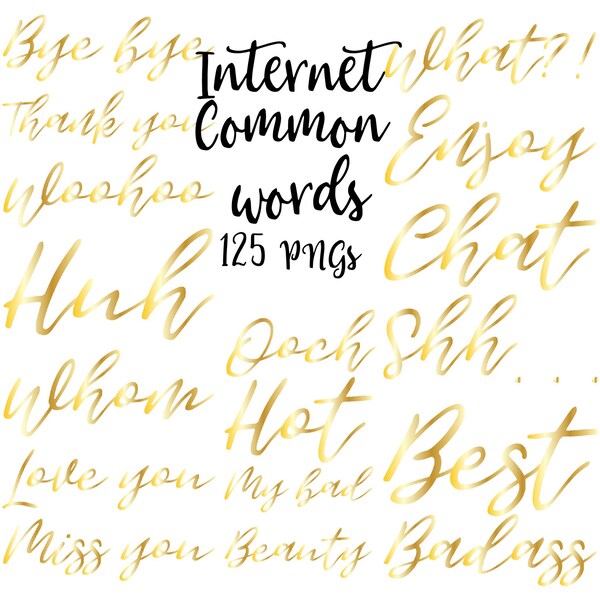 Bye bye
Thank you
Woohoo
Huh
Whom
Love you
Miss you
Internet
Common
words
125 PNGs
Ooch
Hot
My bad
Beauty
What?!
Enjoy
Chat
Shh....
Best
Badass